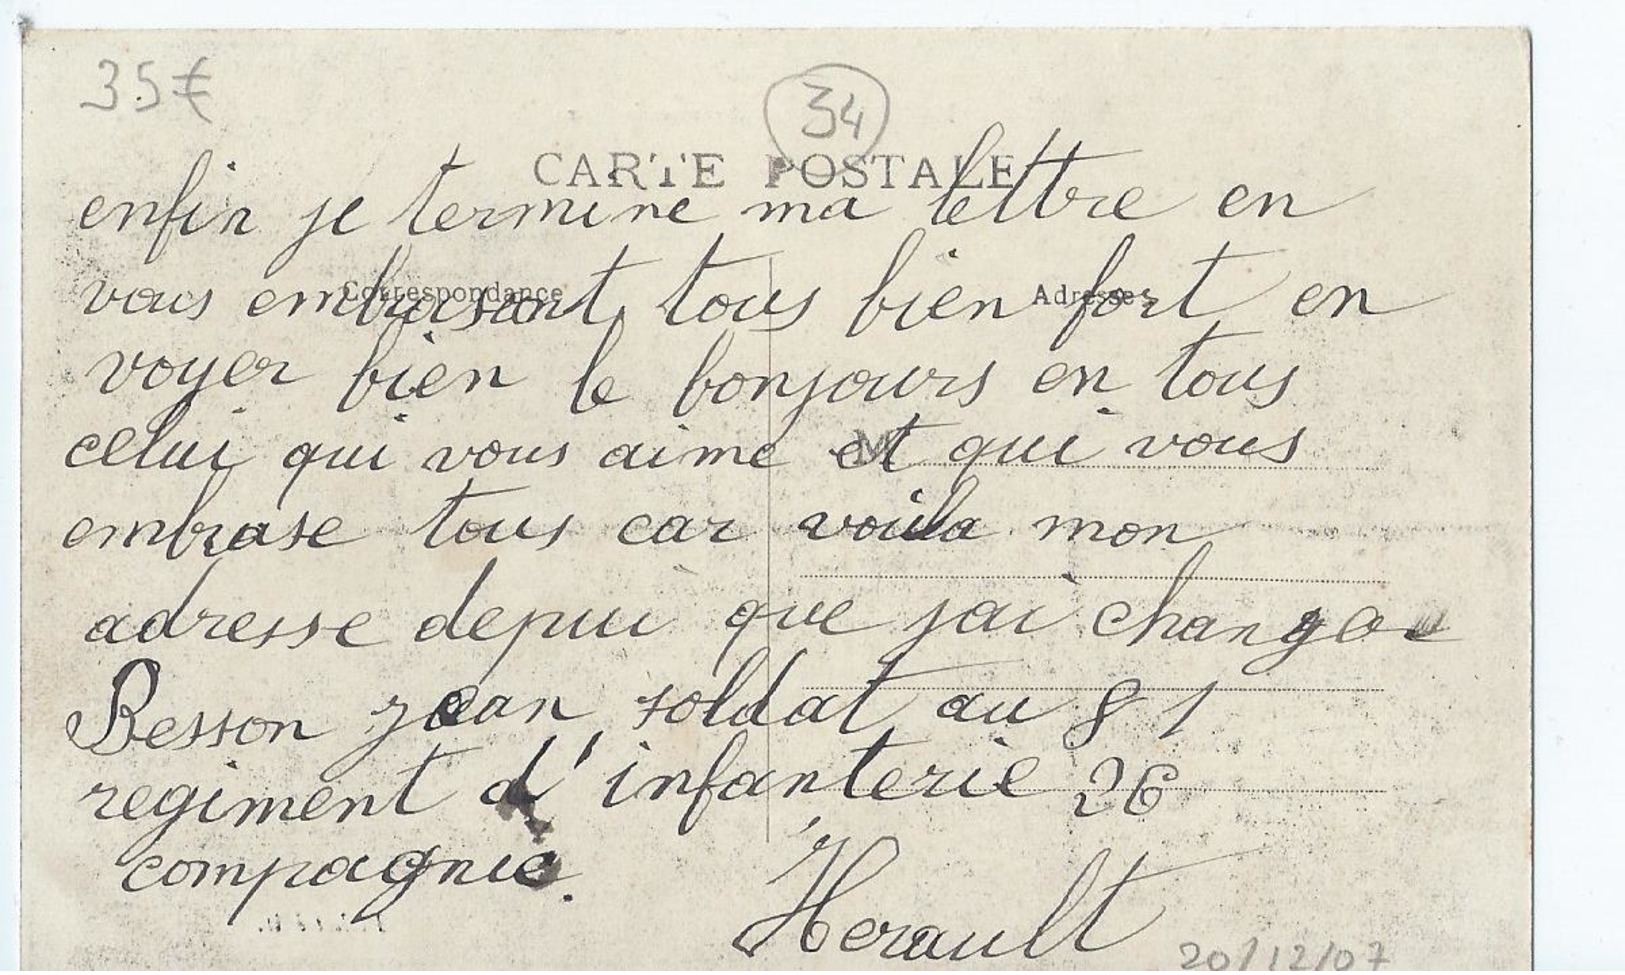 35€
34
CARTE POSTALE
Correspondance
Adresse
enfin je termine ma lettre en
vous embrasant tous bien fort en
voyer bien le bonjours en tous
celui qui vous aime et qui vous
embrase tous car voila mon
adresse depui que jai change
Besson jean soldat au 81
regiment d'infanterie 26
compagnie.
Herault
20/12/07